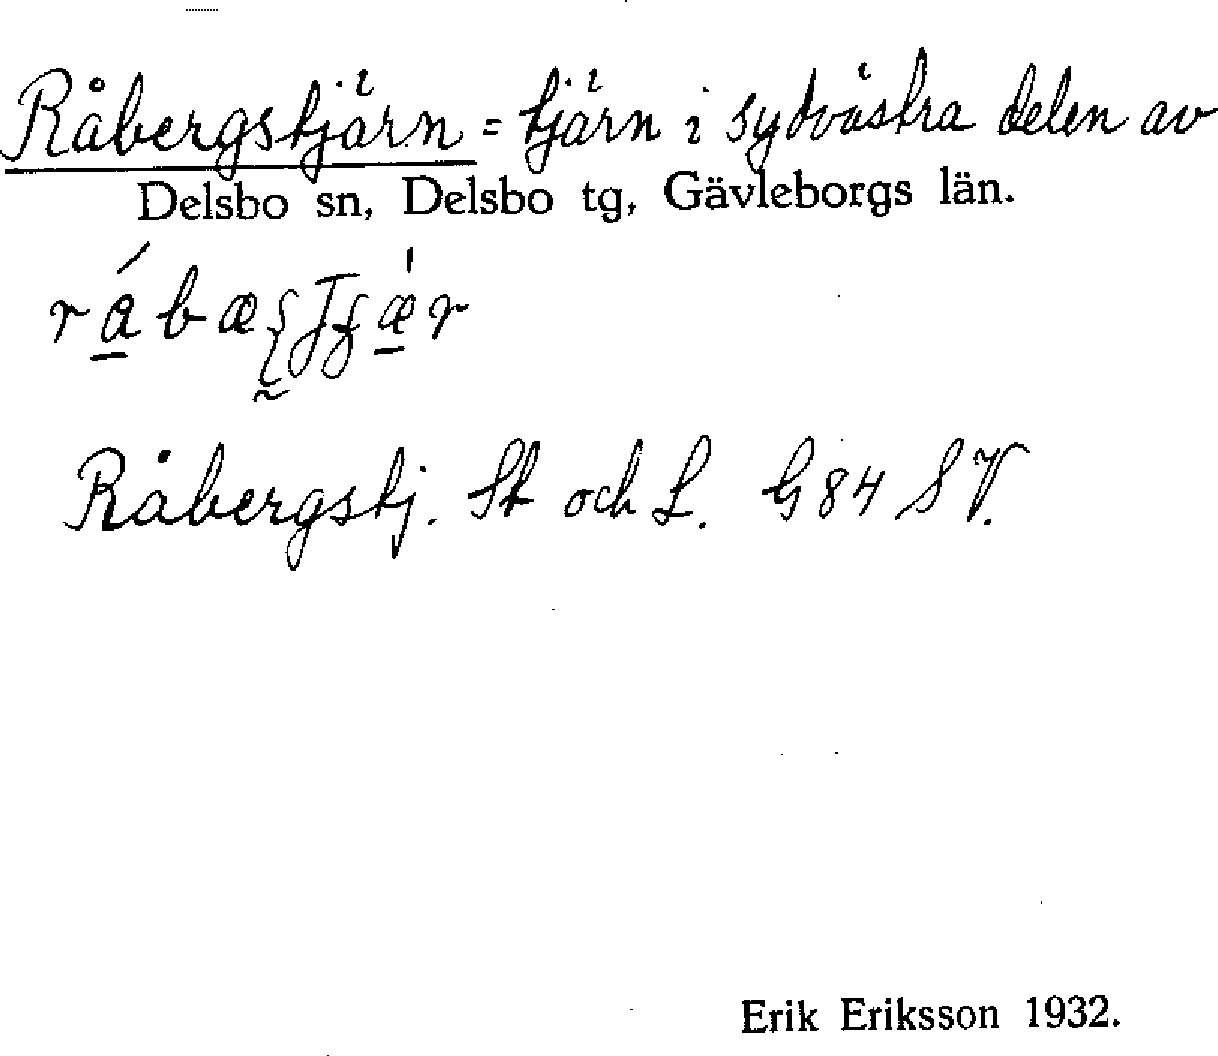 Råbergstjärn = tjärn i sydvästra delen av
Delsbo sn, Delsbo tg, Gävleborgs län.
Råbergstj. St och L. G84 SV.
Erik Eriksson 1932.